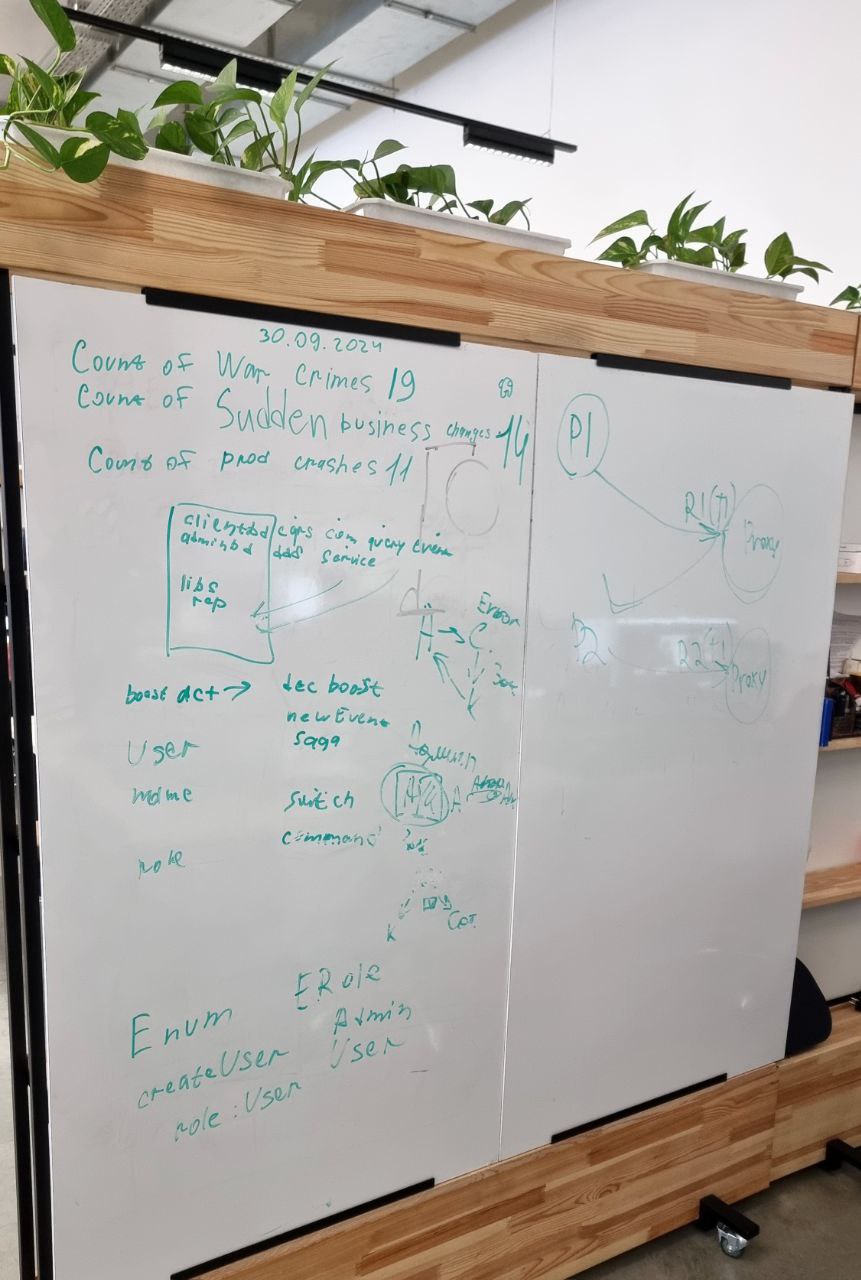 30.09.2024
Count of War Crimes 19
Count of Sudden business changes 14
Count of prod crashes 11
clientbd cqrs com query event
adminbd ddd service
libs
rep
boost act → dec boost
newEvent
saga
User
name
switch
command
role
Error
A → C
K
A
K
Enum ERole
Admin
createUser User
role: User
P1
R1(+1)
Proxy
P2
R2(+1)
Proxy